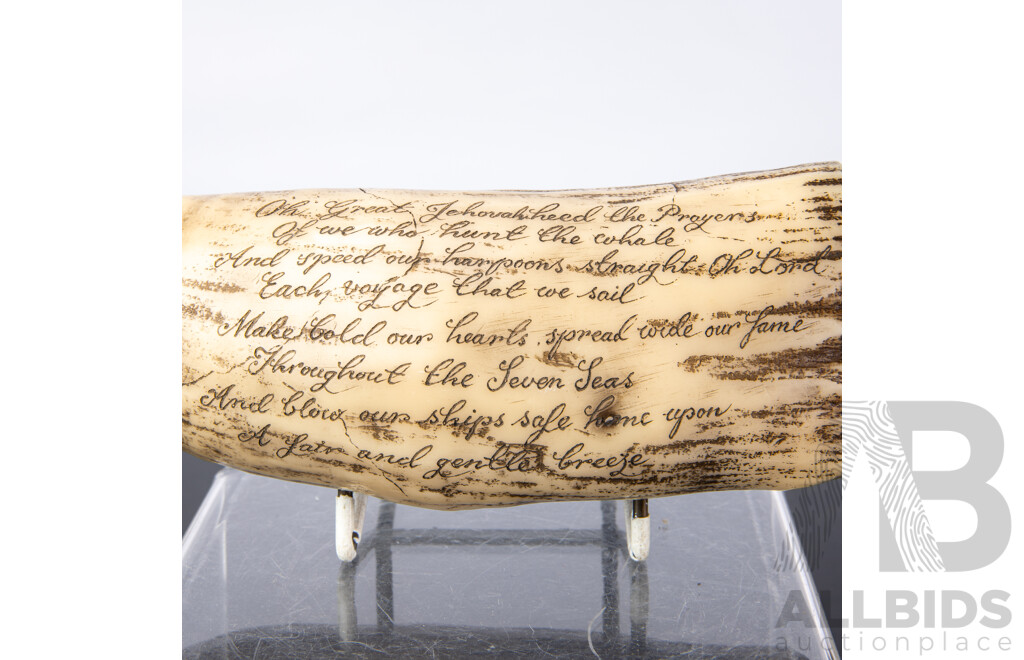 Oh Great Jehovah heed the Prayers
Of we who hunt the whale
And speed our harpoons straight Oh Lord
Each voyage that we sail
Make bold our hearts, spread wide our fame
Throughout the Seven Seas
And blow our ships safe home upon
A fair and gentle breeze
AB
ALLBIDS
auctionplace